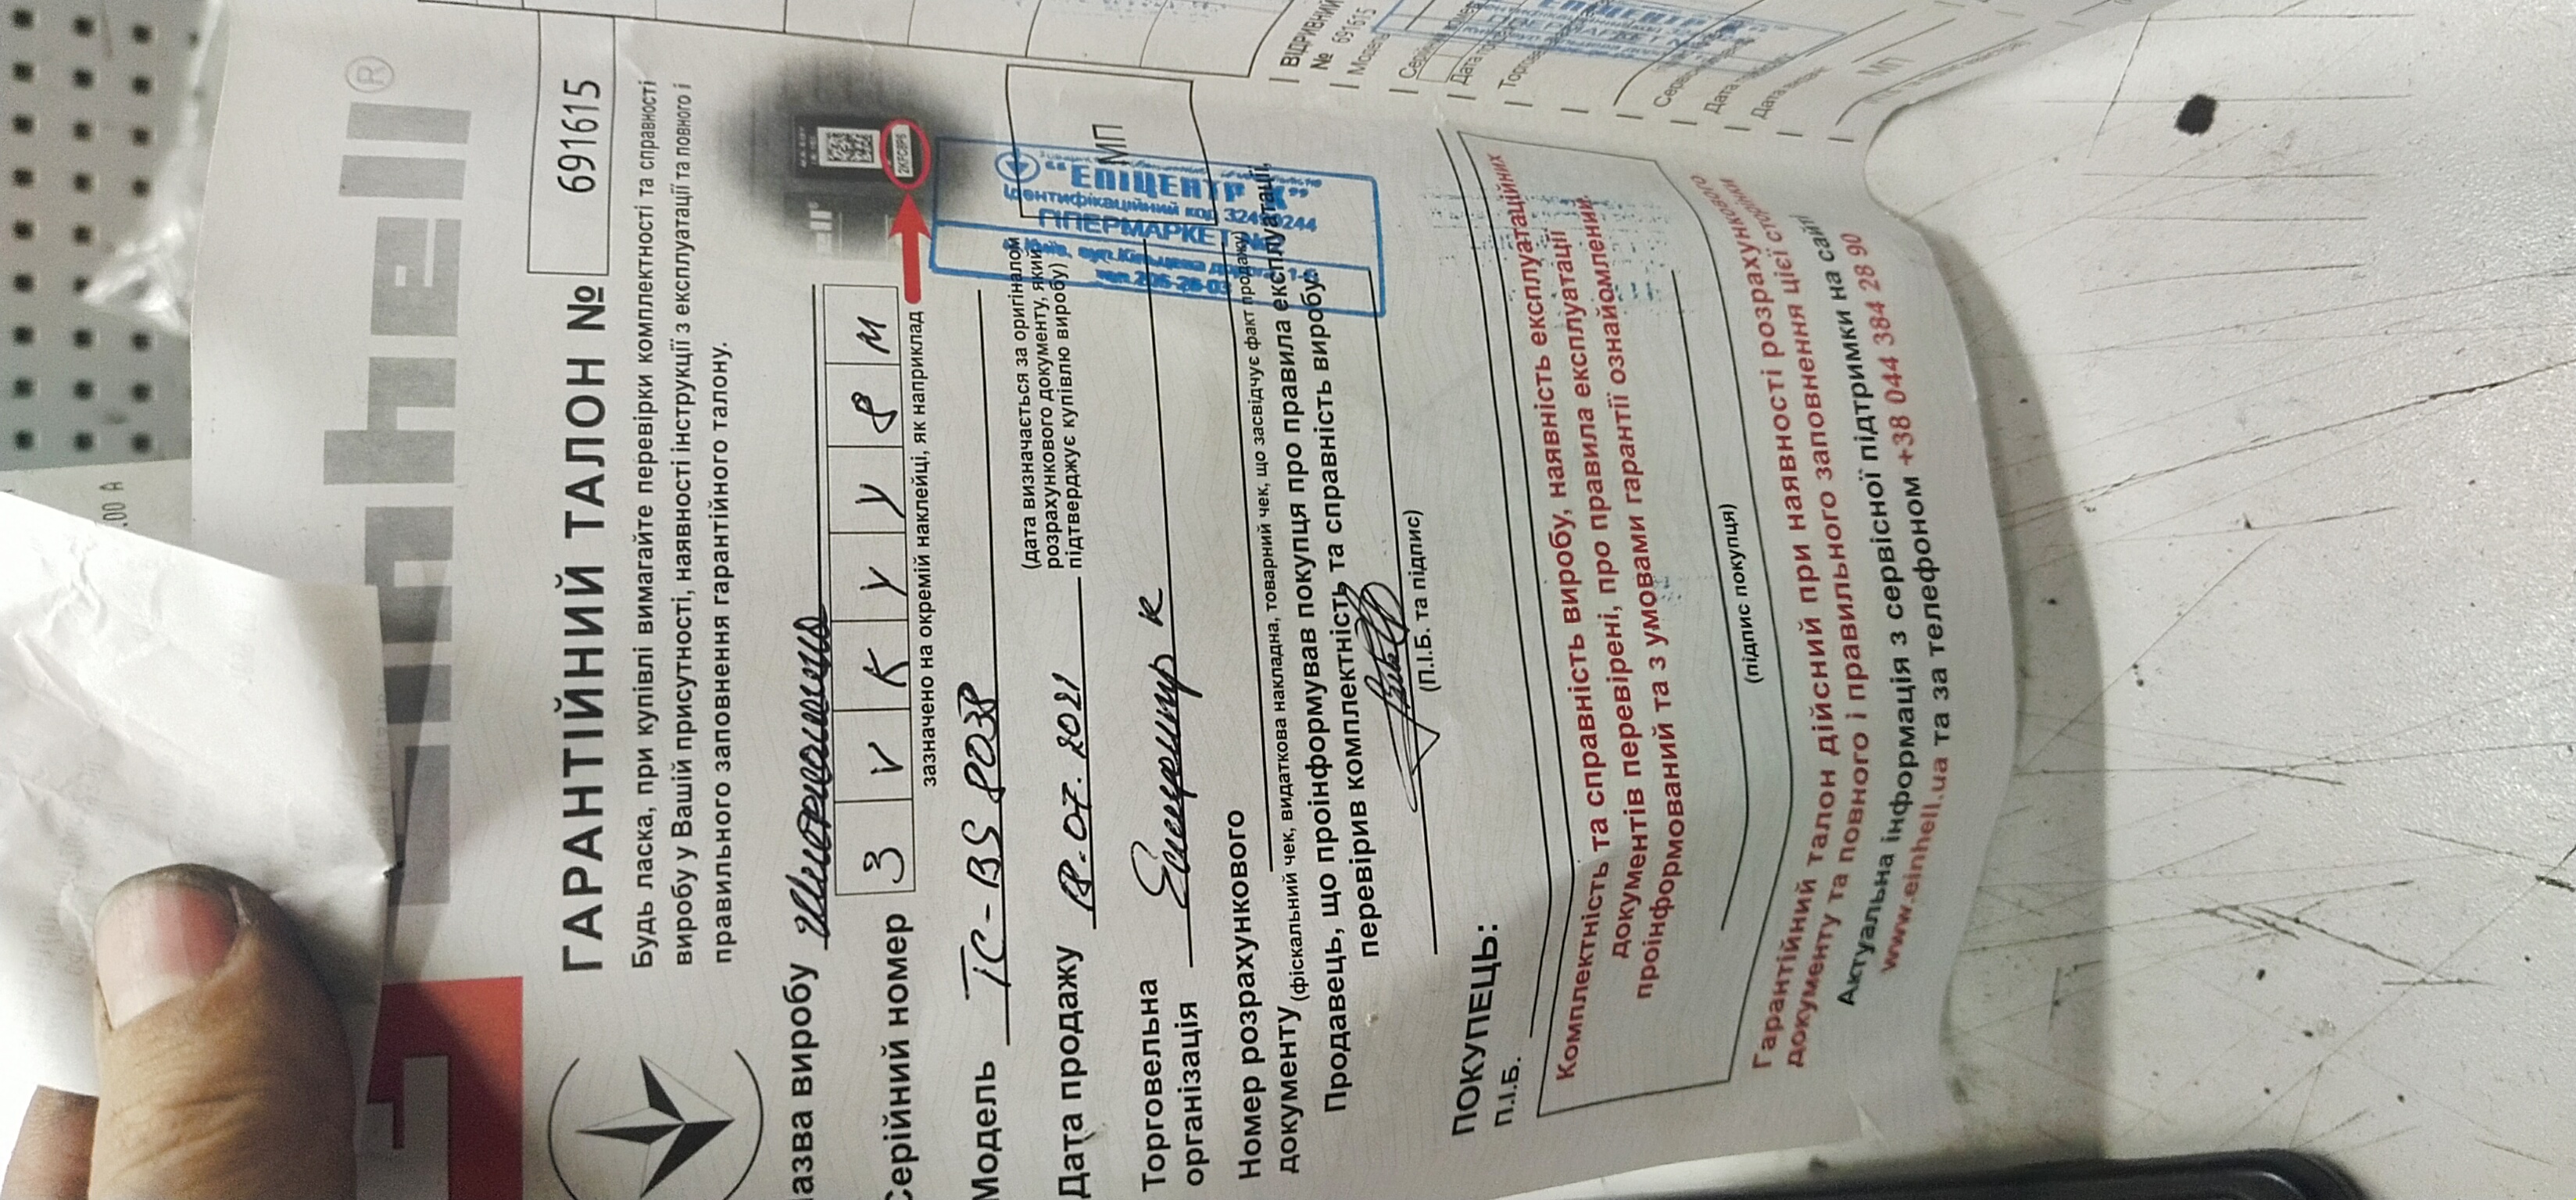 einhell®
ГАРАНТІЙНИЙ ТАЛОН № 691615
Будь ласка, при купівлі вимагайте перевірки комплектності та справності
виробу у Вашій присутності, наявності інструкції з експлуатації та повного і
правильного заповнення гарантійного талону.
азва виробу
Серійний номер 3 V K У У 8 М
зазначено на окремій наклейці, як наприклад
Модель TC-BS 8038
Дата продажу 18.07.2021
(дата визначається за оригіналом
розрахункового документу, який
підтверджує купівлю виробу)
МП
"ЕПІЦЕНТР К"
Ідентифікаційний код
ГІПЕРМАРКЕТ
Торговельна
організація Епіцентр К
Номер розрахункового
документу
(фіскальний чек, видаткова накладна, товарний чек, що засвідчує факт продажу)
Продавець, що проінформував покупця про правила експлуатації,
перевірив комплектність та справність виробу:
(П.І.Б. та підпис)
ПОКУПЕЦЬ:
П.І.Б.
Комплектність та справність виробу, наявність експлуатаційних
документів перевірені, про правила експлуатації
проінформований та з умовами гарантії ознайомлений.
(підпис покупця)
Гарантійний талон дійсний при наявності розрахункового
документу та повного і правильного заповнення цієї сторінки
Актуальна інформація з сервісної підтримки на сайті
www.einhell.ua та за телефоном +38 044 384 28 90
ВІДРИВНИЙ
№ 691615
Модель
Серійний номер
Дата
МП
.00 A